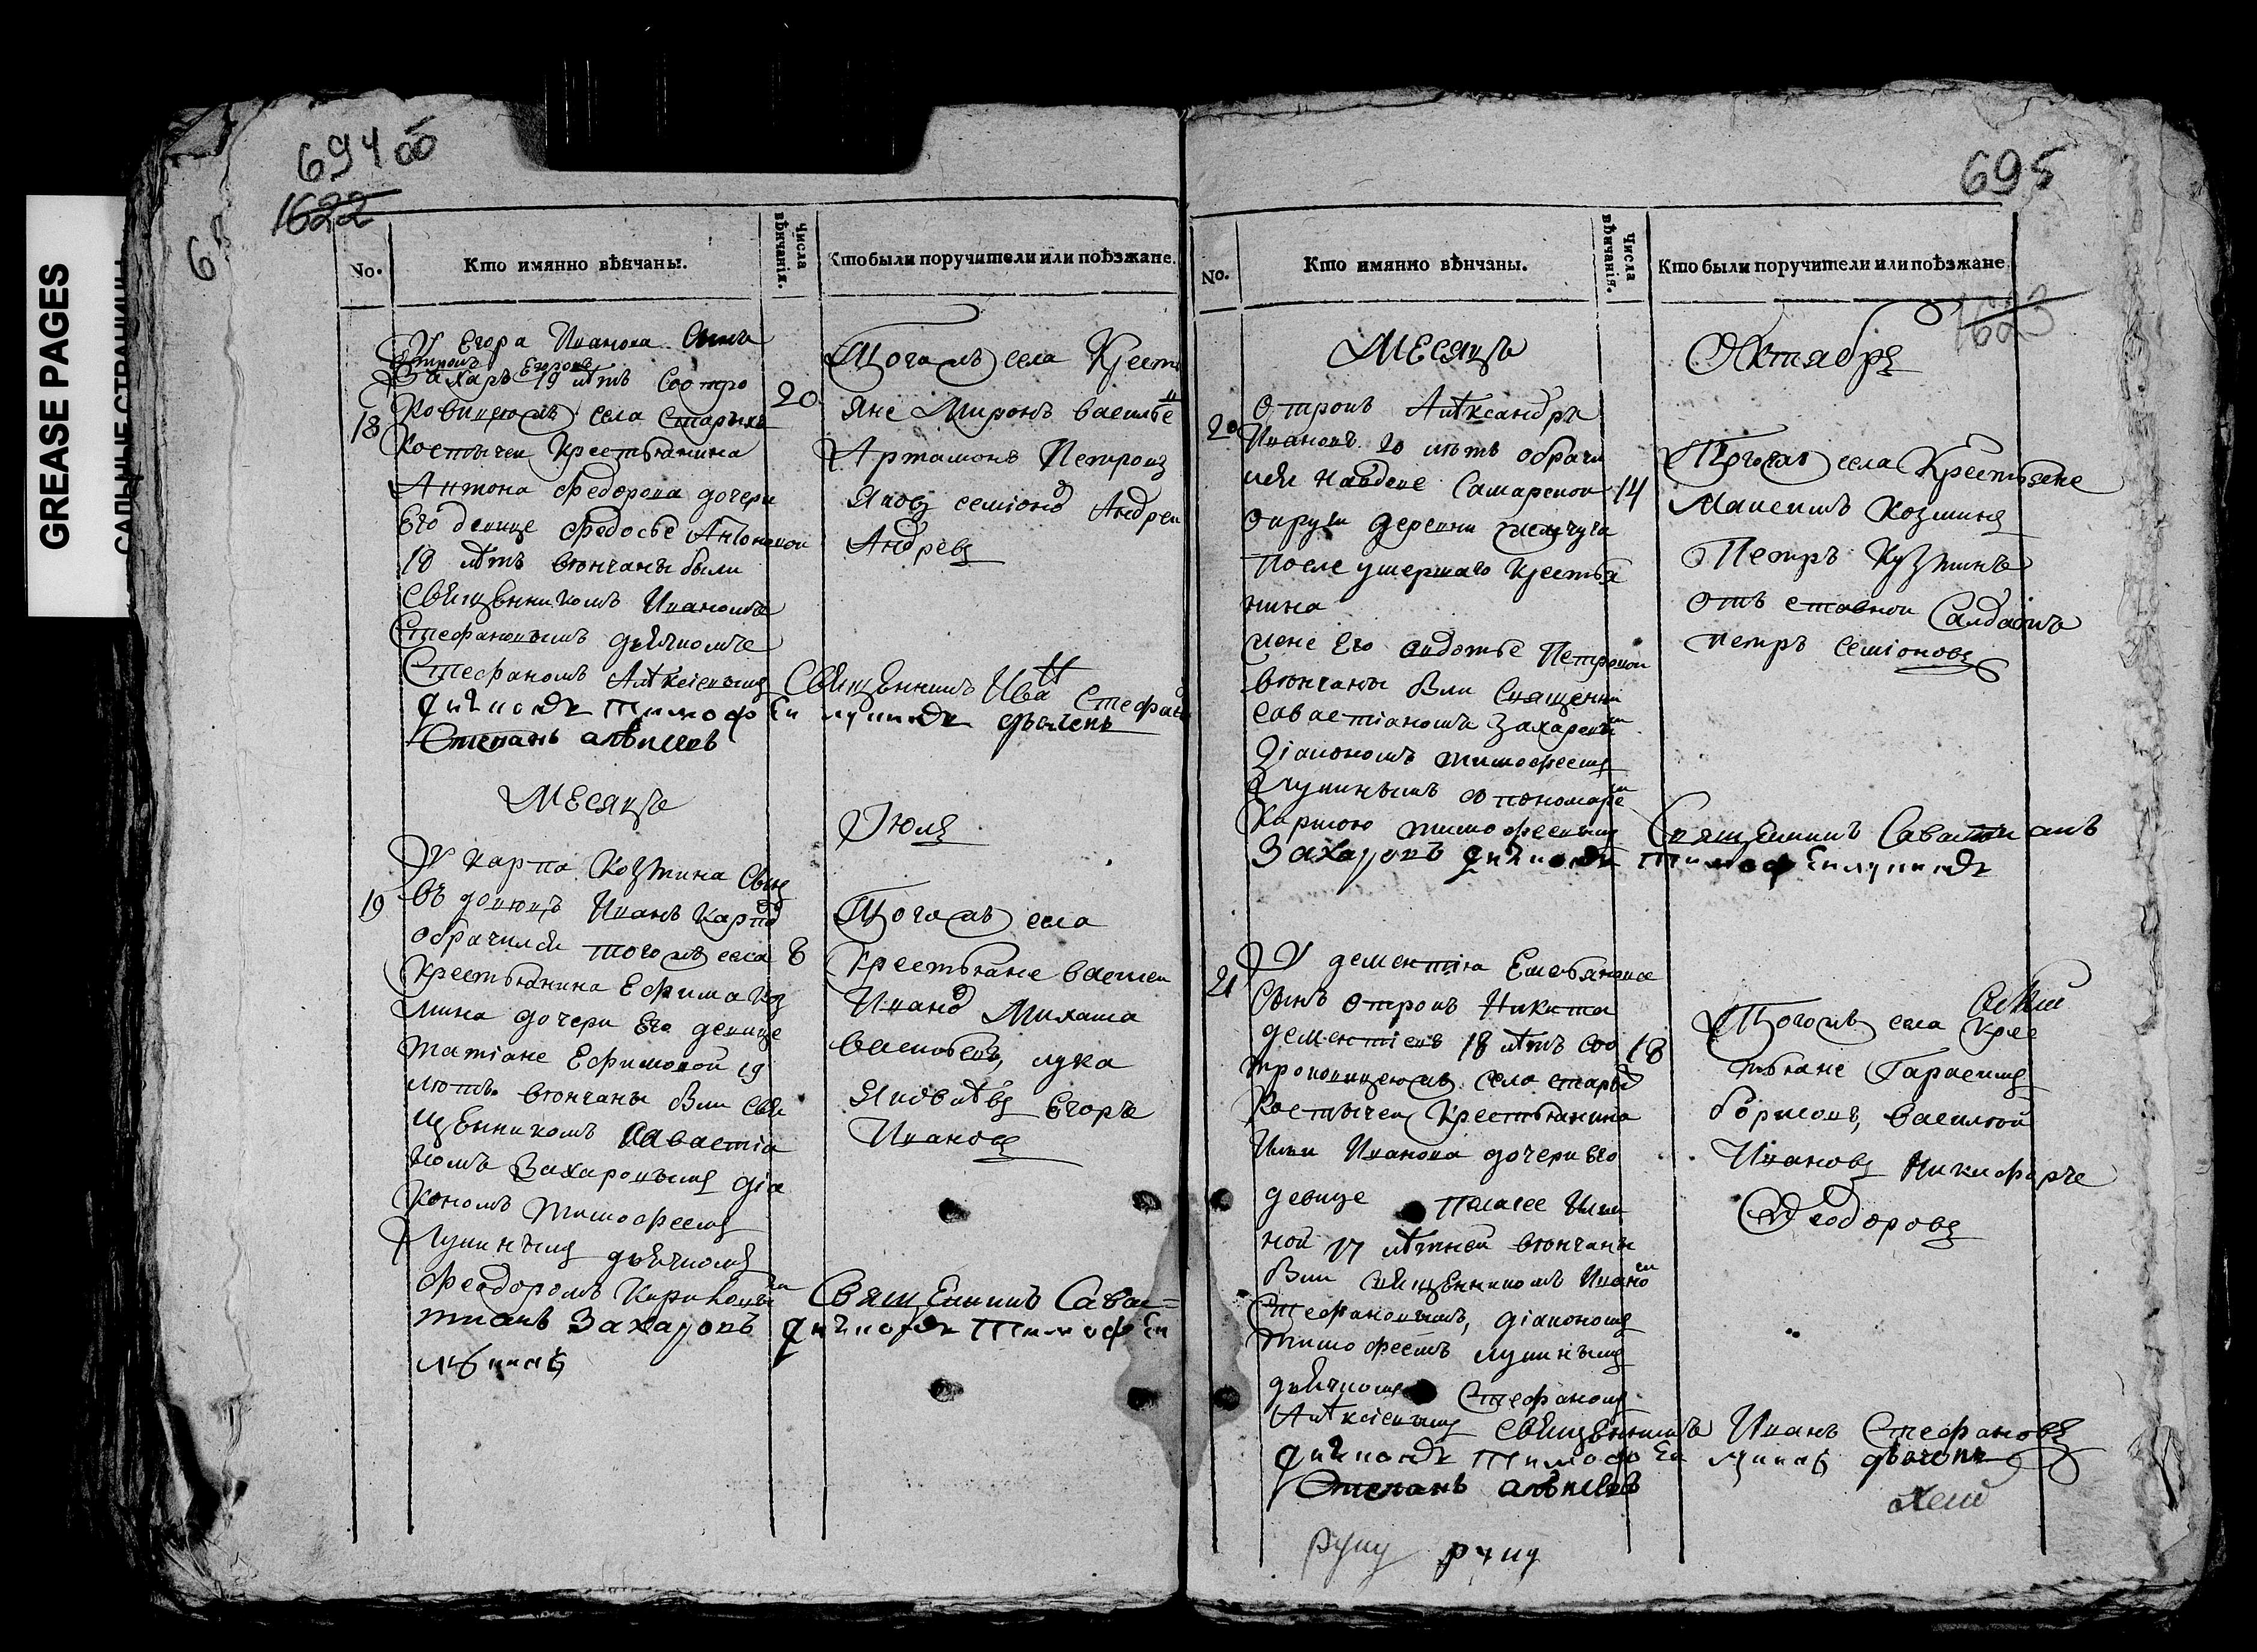 GREASE PAGES
САЛЬНЫЕ СТРАНИЦЫ
694 об
1622
6
No.
Кто имянно вѣнчаны.
Числа вѣнчанія.
Кто были поручители или поѣзжане.
У Егора Иванова сынъ
отрокъ Егоровъ
Захаръ 19 лѣтъ соотро
18
ковицеюжъ села старыхъ
20
Костычеи крестьянина
Антона Федорова дочери
его девице Федосье Антоновои
18 лѣтъ венчаны были
священникомъ Иваномъ
Стефановымъ дьячкомъ
Стефаномъ Алѣксіевымъ
Тогожъ села Крестъ
яне Миронъ василье
Артамонъ Петровъ
Яковъ семіоновъ Андреи
Андревъ
Священникъ Иванъ Стефанов
дияконъ Тимофеи лунинъ дьячекъ
Степанъ алѣксеевъ
месяцъ
Июля
У карпа Козмина сынъ
19
въ довецъ Иванъ Карповъ
обрачился тогожъ села
8
крестьянина Ефима Коз
мина дочери его девице
татіане Ефимовой 19
летъ венчаны были свя
щенникомъ савастіа
номъ Захаровымъ діа
кономъ тимофеемъ
Лунинымъ дьячкомъ
феодоромъ
Тогожъ села
Крестьяне васили
Ивановъ Михаила
васильевъ, лука
Яковлѣвъ Егоръ
Ивановъ
Священникъ Савас=
тианъ Захаровъ диякон Тимофеи
лунинъ
695
No.
Кто имянно вѣнчаны.
Числа вѣнчанія.
Кто были поручители или поѣзжане.
1623
месяцъ
Октября
отрокъ Алѣксандръ
20
Ивановъ 20 летъ обрачи
лся на вдове Самарской
14
округи деревни
после умершаго крестья
нина
жене его авдотье Петровои
венчаны были священни
савастіаномъ Захаровы
діакономъ тимофеемъ
лунинымъ пономаре
тимофеевымъ
Тогожъ села Крестьяне
Максимъ козминъ
Петръ Кузминъ
отъ ставнои Салдатъ
петръ семіоновъ
Священникъ Савастианъ
Захаровъ диякон Тимофеи лунинъ
У дементія Емельянова
21
сынъ отрокъ Никита
дементіевъ 18 лѣтъ соо
18
троковицеюжъ села старых
Костычеи крестьянина
Ильи Иванова дочери его
девице Пелагее Ильи
ной 17 лѣтней венчаны
были священникомъ Ивано
Стефановымъ, діакономъ
тимофеемъ лунинымъ
дьячкомъ Стефаномъ
Алѣксіевымъ
Тогожъ села Крес
тьяне Гарасимъ
борисовъ, василей
Ивановъ Никифоръ
Феодоровъ
священникъ Иванъ Стефановъ
диякон Тимофеи лунинъ дьячекъ
Степанъ алѣксеевъ
руку руку